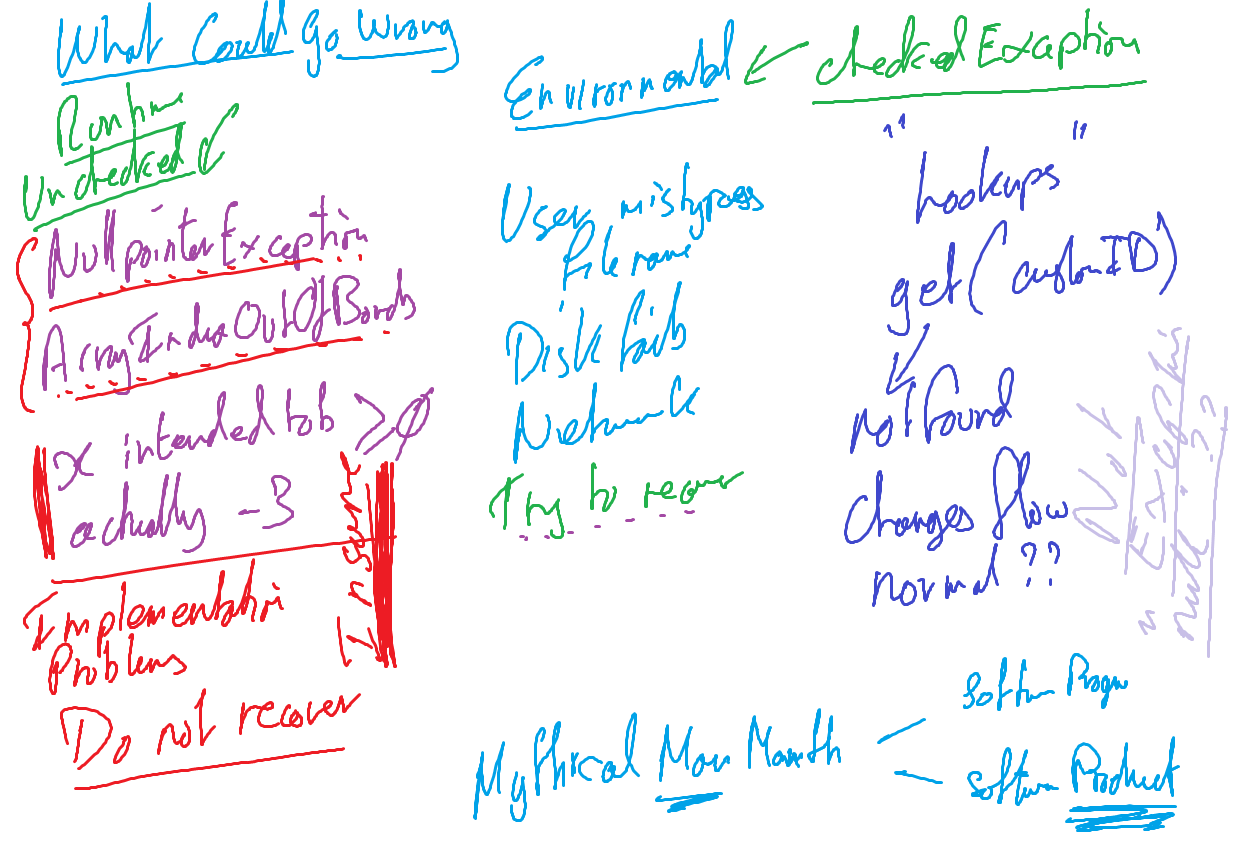 What Could Go Wrong
Runtime
Unchecked
NullpointerException
ArrayIndexOutOfBounds
x intended to b ≥0
actually -3
Insane
Implementation
Problems
Do not recover
Environmental
User mistypes
file name
Disk fails
Network
Try to recover
checked Exception
"lookups"
get(customID)
not found
changes flow
normal ??
Not
Exception
null ??
Mythical Man Month
Software
Software Product